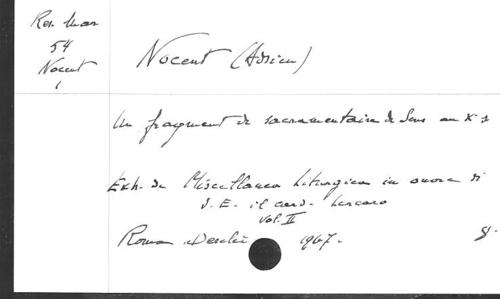 Nocent (Adrien)
54
Nocent
1
Un fragment de sacramentaire de Sens au Xe s
Extr. de Miscellanea Liturgica in onore di
S. E. il card. Lercaro
Vol. II
Roma Desclée 1967.